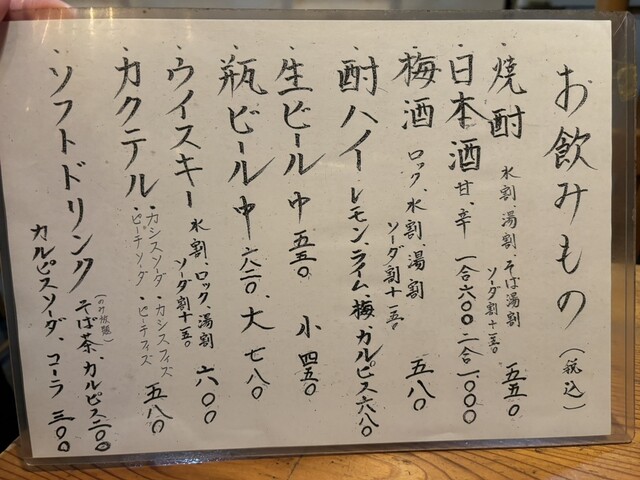 お飲みもの（税込）
・焼酎 水割、湯割、そば湯割 五五〇
ソーダ割十一五〇
・日本酒 甘、辛 一合六〇〇 二合一、〇〇〇
・梅酒 ロック、水割、湯割 五八〇
ソーダ割十一五〇
・酎ハイ レモン、ライム、梅、カルピス六八〇
・生ビール 中 五五〇 小 四五〇
・瓶ビール 中 六二〇、大 七八〇
・ウイスキー 水割、ロック、湯割 六〇〇
ソーダ割十一五〇
・カクテル ・カシスソーダ ・カシスフィズ 五八〇
・ピーチソーダ ・ピーチフィズ
・ソフトドリンク そば茶、カルピス二〇〇
（のみ放題）
カルピスソーダ、コーラ 三〇〇